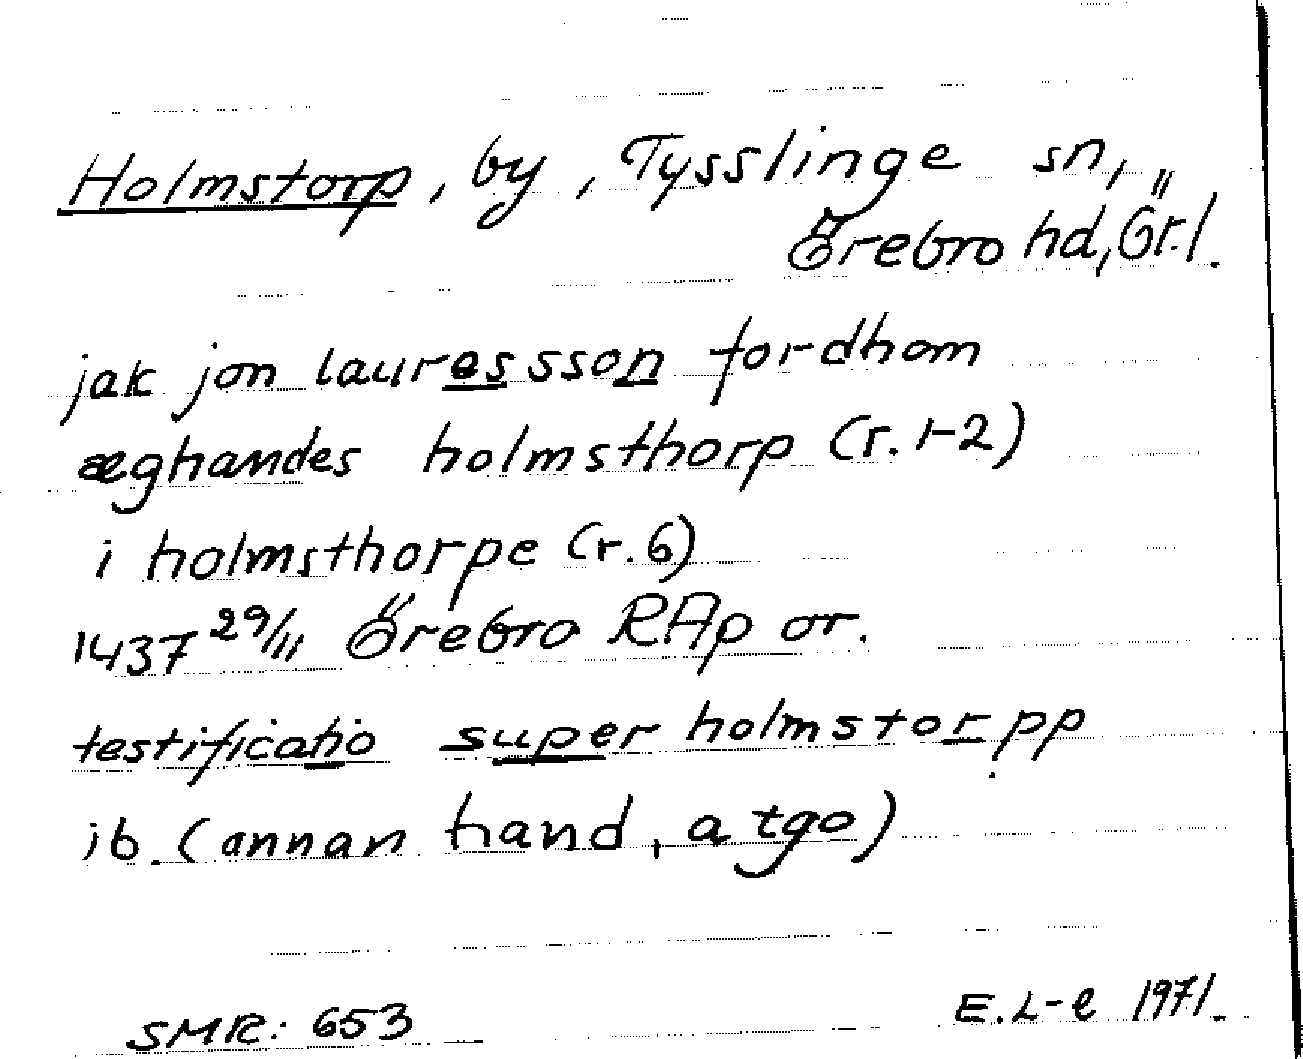 Holmstorp, by, Tysslinge sn,
Örebro hd, Ör.l.
jak jon lauressson fordhom
æghandes holmsthorp (r. 1-2)
i holmsthorpe (r. 6)
1437 29/11 Örebro RAp or.
testificatio super holmstorpp
ib. (annan hand, a tgo)
SMR: 653
E. L-e 1971.